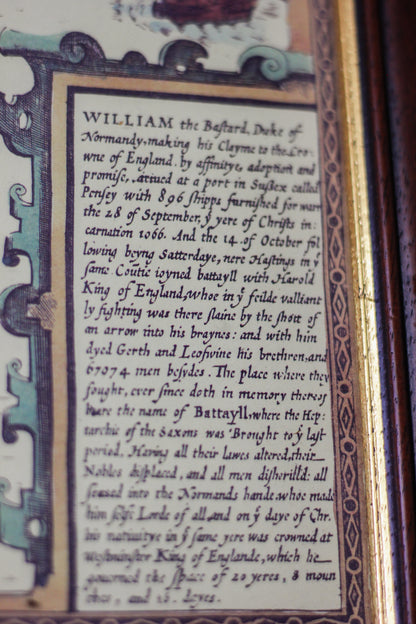 WILLIAM the Bastard, Duke of
Normandy, making his Clayme to the Cro:
wne of England. by affinitye, adoption and
promise, arived at a port in Sussex called
Pensey with 896 shipps furnished for warr
the 28 of September, ẏ yere of Christs in:
carnation 1066. And the 14 of October fol
lowing beyng Satterdaye, nere Hastings in ẏ
same Coūtie ioyned battayll with Harold
King of England, whoe in ẏ feilde valliant
ly fighting was there slaine by the shott of
an arrow into his braynes: and with him
dyed Gerth and Leofwine his brethren, and
67974 men besydes. The place where they
fought, ever since doth in memory thereof
beare the name of Battayll, where the Hep:
tarchie of the Saxons was Brought to ẏ last
period. Having all their lawes altered, their
Nobles displaced, and all men disherited: all
seased into the Normands hande, whoe made
him selfe Lorde of all, and on ẏ daye of Chr.
his nativitye in ẏ same yere was crowned at
Westminster King of Englande, which he
governed the space of 20 yeres, 8 moun
thes, and 16. dayes.